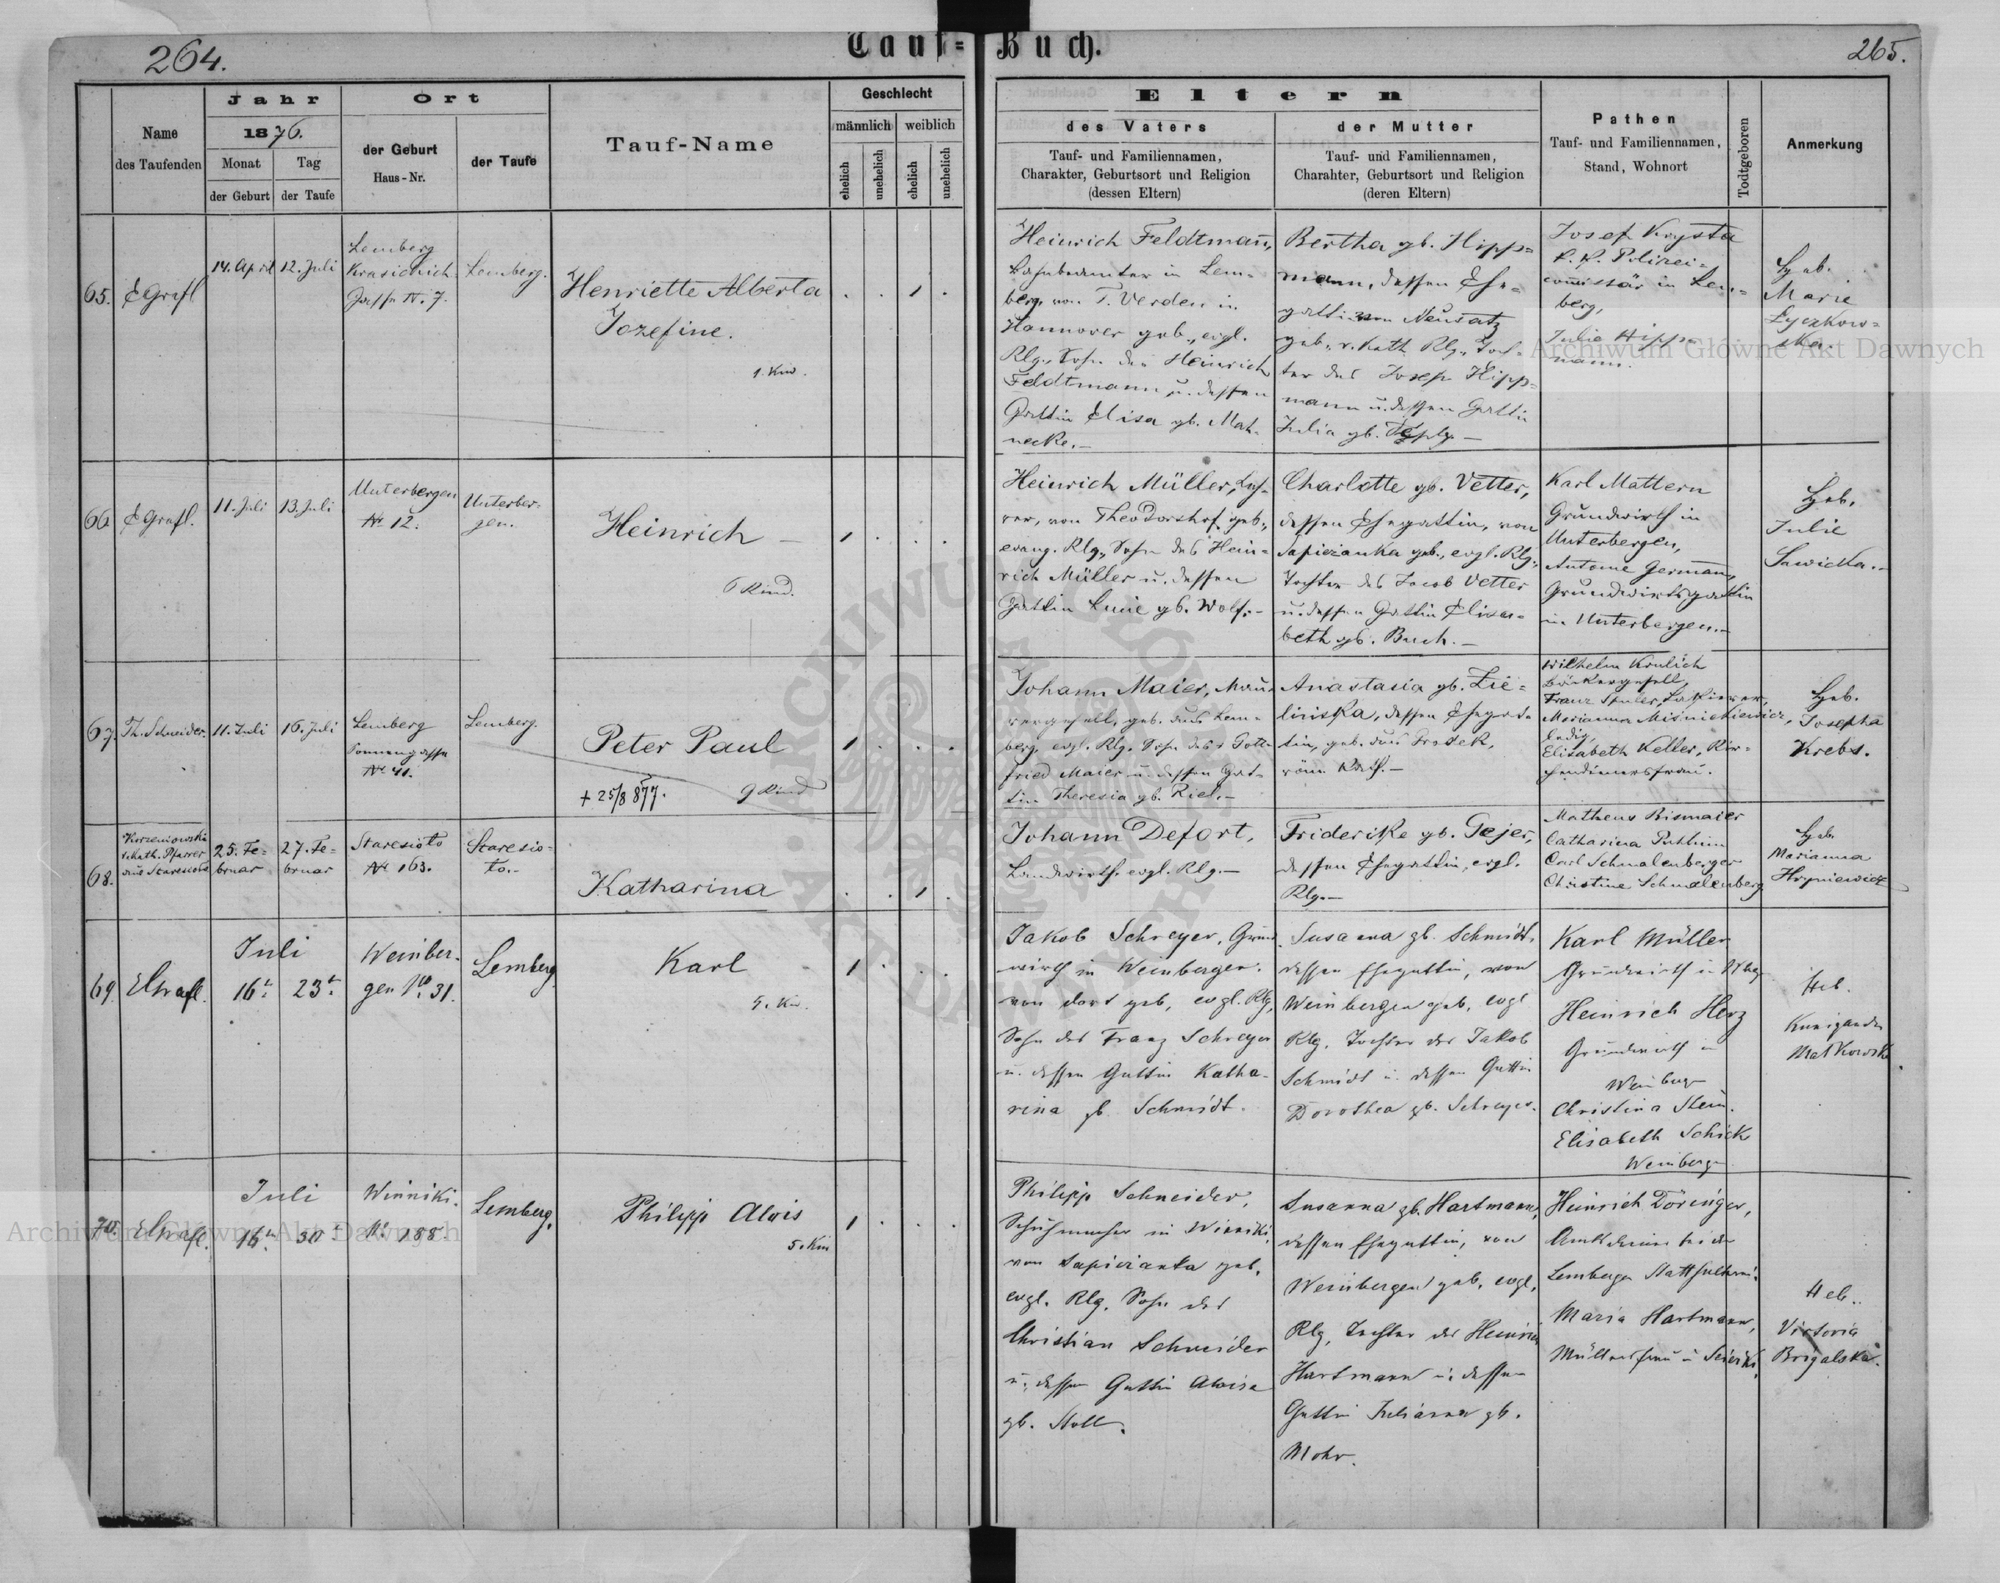 264.
Tauf=Buch.
265.
Name
des Taufenden
Jahr
1876.
Monat
Tag
der Geburt
der Taufe
Ort
der Geburt
Haus-Nr.
der Taufe
Tauf-Name
Geschlecht
männlich
weiblich
ehelich
unehelich
ehelich
unehelich
Eltern
des Vaters
Tauf- und Familiennamen,
Charakter, Geburtsort und Religion
(dessen Eltern)
der Mutter
Tauf- und Familiennamen,
Charahter, Geburtsort und Religion
(deren Eltern)
Pathen
Tauf- und Familiennamen,
Stand, Wohnort
Todtgeboren
Anmerkung
65.
EGrafl
14. April
12. Juli
Lemberg
Gasse N. 7.
Lemberg.
Henriette Alberta
Jozefine.
1. Kind.
Heinrich Feldtmann,
Bahnbeamter in Lem-
berg, von T. Verden in
Hannover geb., evgl.
Rlg., Sohn des Heinrich
Feldtmann u. dessen
Gattin Elisa gb. Mah-
necke.-
Bertha gb. Hipp=
mann, dessen Ehe=
gattin von Neusatz
geb., r. kath. Rlg., Toch=
ter des Josef Hipp=
mann u. dessen Gattin
Julia gb.
Josef Krysta
k. k. Polizei=
commissär in Lem=
berg,
Julie Hipp=
mann.
Hgeb.
Marie
Łyczkow=
ska.
66
EGrafl.
11. Juli
13. Juli
Unterbergen
N. 12.
Unterber-
gen.
Heinrich -
6 Kind.
Heinrich Müller, Leh-
rer, von Theodorshof geb.,
evang. Rlg., Sohn des Hein=
rich Müller u. dessen
Gattin Lucie gb. Wolf.-
Charlotte gb. Vetter,
dessen Ehegattin, von
Sapiezanka geb., evgl. Rlg.,
Tochter des Jacob Vetter
u. dessen Gattin Elisa=
beth gb. Busch.-
Karl Mattern
Grundwirth in
Unterbergen,
Antonie Germann,
Grundwirtsgattin
in Unterbergen.-
Hgeb.
Julie
Sawicka.-
67.
Th. Schneider.
11. Juli
16. Juli
Lemberg
Sonnengasse
N. 41.
Lemberg.
Peter Paul
+ 25/8 877.
9 Kind
Johann Maier, Mau=
rergesell, geb. aus Lem=
berg, evgl. Rlg. Sohn des Gott=
fried Maier u. dessen Gat=
tin Theresia gb. Riel.-
Anastasia gb. Zie=
linska, dessen Ehegat=
tin, geb. aus Grodek,
röm. Kath.-
Wilhelm Krulich
Bäckergesell,
ledig,
Elisabeth Keller, Kir=
chendienersfrau.
Hgeb.
Josepha
Krebs.
68.
Korzeniowski
r. kath. Pfarrer
aus Staresioło
25. Fe=
bruar
27. Fe=
bruar
Staresioło
N. 163.
Staresio=
ło.-
Katharina
Johann Defort,
Landwirth. evgl. Rlg.-
Friderike gb. Gejer,
dessen Ehegattin, evgl.
Rlg.-
Matheus Bismaier
Catharina
Carl Schmalenberger
Christine Schmalenberg
Hgeb.
Marianna
Hryniewicz
69.
EGrafl.
Juli
16t.
23t.
Weinber-
gen No 31.
Lemberg
Karl
5. Kin.
Jakob Schreyer, Grund
wirth in Weinbergen.
von dort geb, evgl. Rlg.
Sohn des Franz Schreyer
u. dessen Gattin Katha-
rina gb. Schmidt.
Susanna gb. Schmidt,
dessen Ehegattin, von
Weinbergen geb. evgl
Rlg. Tochter des Jakob
Schmidt u. dessen Gattin
Dorothea gb. Schreyer.
Karl Müller
Grundwirth in
Heinrich Herz
Grundwirth in
Weinberge
Christina Stein.
Elisabeth Schick
Weinberge
Heb.
Kunigunda
Malkowska
70.
EGrafl.
Juli
16tn
30t
Winniki.
N. 188.
Lemberg.
Philipp Alois
5. Kin
Philipp Schneider,
Schuhmacher in Winniki,
von Sapieianka geb,
evgl. Rlg. Sohn des
Christian Schneider
u. dessen Gattin Aloisa
gb. Stoll.
Susanna gb. Hartmann,
dessen Ehegattin, von
Weinbergen geb. evgl.
Rlg, Tochter des Heinrich
Hartmann u. dessen
Gattin Julianna gb.
Mohr.
Heinrich Döringer,
Amtsdiener bei der
Lemberger
Maria Hartmann,
Müllersfrau in
Heb.
Victoria
Brigalska.
Archiwum Główne Akt Dawnych
Archiwum Główne Akt Dawnych
ARCHIWUM GŁÓWNE AKT DAWNYCH